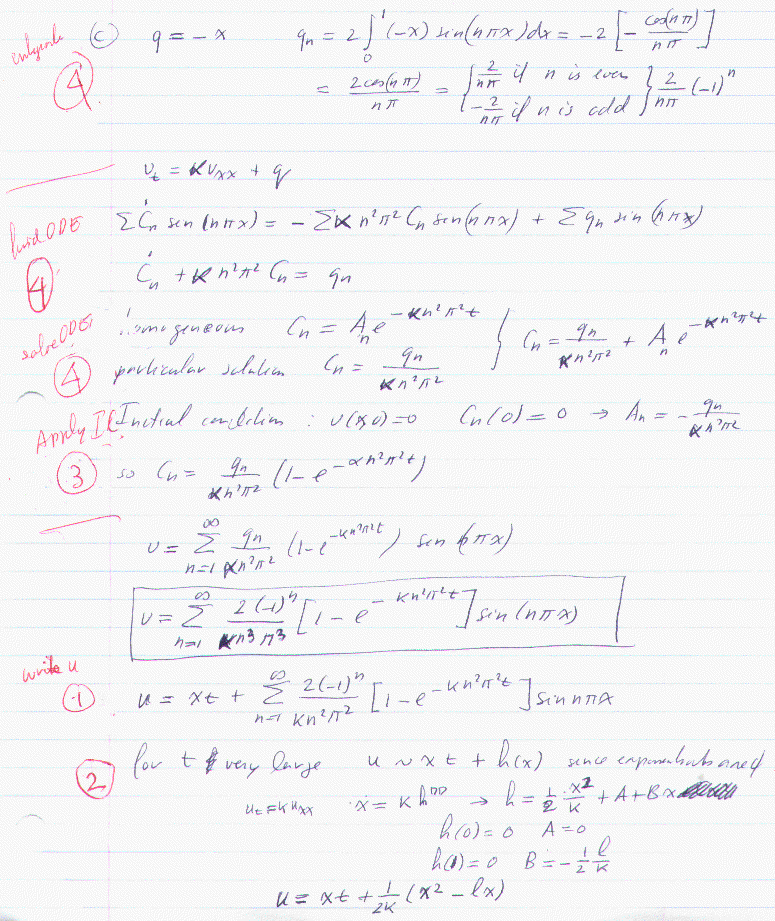 (c) q = -x    q_n = 2∫_0^1 (-x) sin(nπx) dx = -2 [ - cos(nπ)/nπ ]
④
= 2cos(nπ)/nπ = { 2/nπ if n is even
-2/nπ if n is odd } 2/nπ (-1)^n
v_t = K v_xx + q
find ODE ④
Σ Ċ_n sin(nπx) = - Σ K n²π² C_n sin(nπx) + Σ q_n sin(nπx)
Ċ_n + K n²π² C_n = q_n
solve ODE ④
homogeneous C_n = A_n e^{-Kn²π²t}
particular solution C_n = q_n/(Kn²π²) } C_n = q_n/(Kn²π²) + A_n e^{-Kn²π²t}
Apply IC ③
Initial condition : v(x,0)=0    C_n(0) = 0 → A_n = - q_n/(Kn²π²)
so C_n = q_n/(Kn²π²) (1 - e^{-αn²π²t})
v = Σ_{n=1}^∞ q_n/(Kn²π²) (1 - e^{-Kn²π²t}) sin(nπx)
v = Σ_{n=1}^∞ 2(-1)^n/(Kn³π³) [1 - e^{-Kn²π²t}] sin(nπx)
write u ①
u = xt + Σ_{n=1}^∞ 2(-1)^n/(Kn²π²) [1 - e^{-Kn²π²t}] sin nπx
②
for t very large    u ~ xt + h(x) since exponentials are
u_t = K u_xx    x = K h'' → h = 1/2 x²/K + A + Bx
h(0) = 0   A = 0
h(1) = 0   B = -1/2 l/K
u = xt + 1/2K (x² - lx)